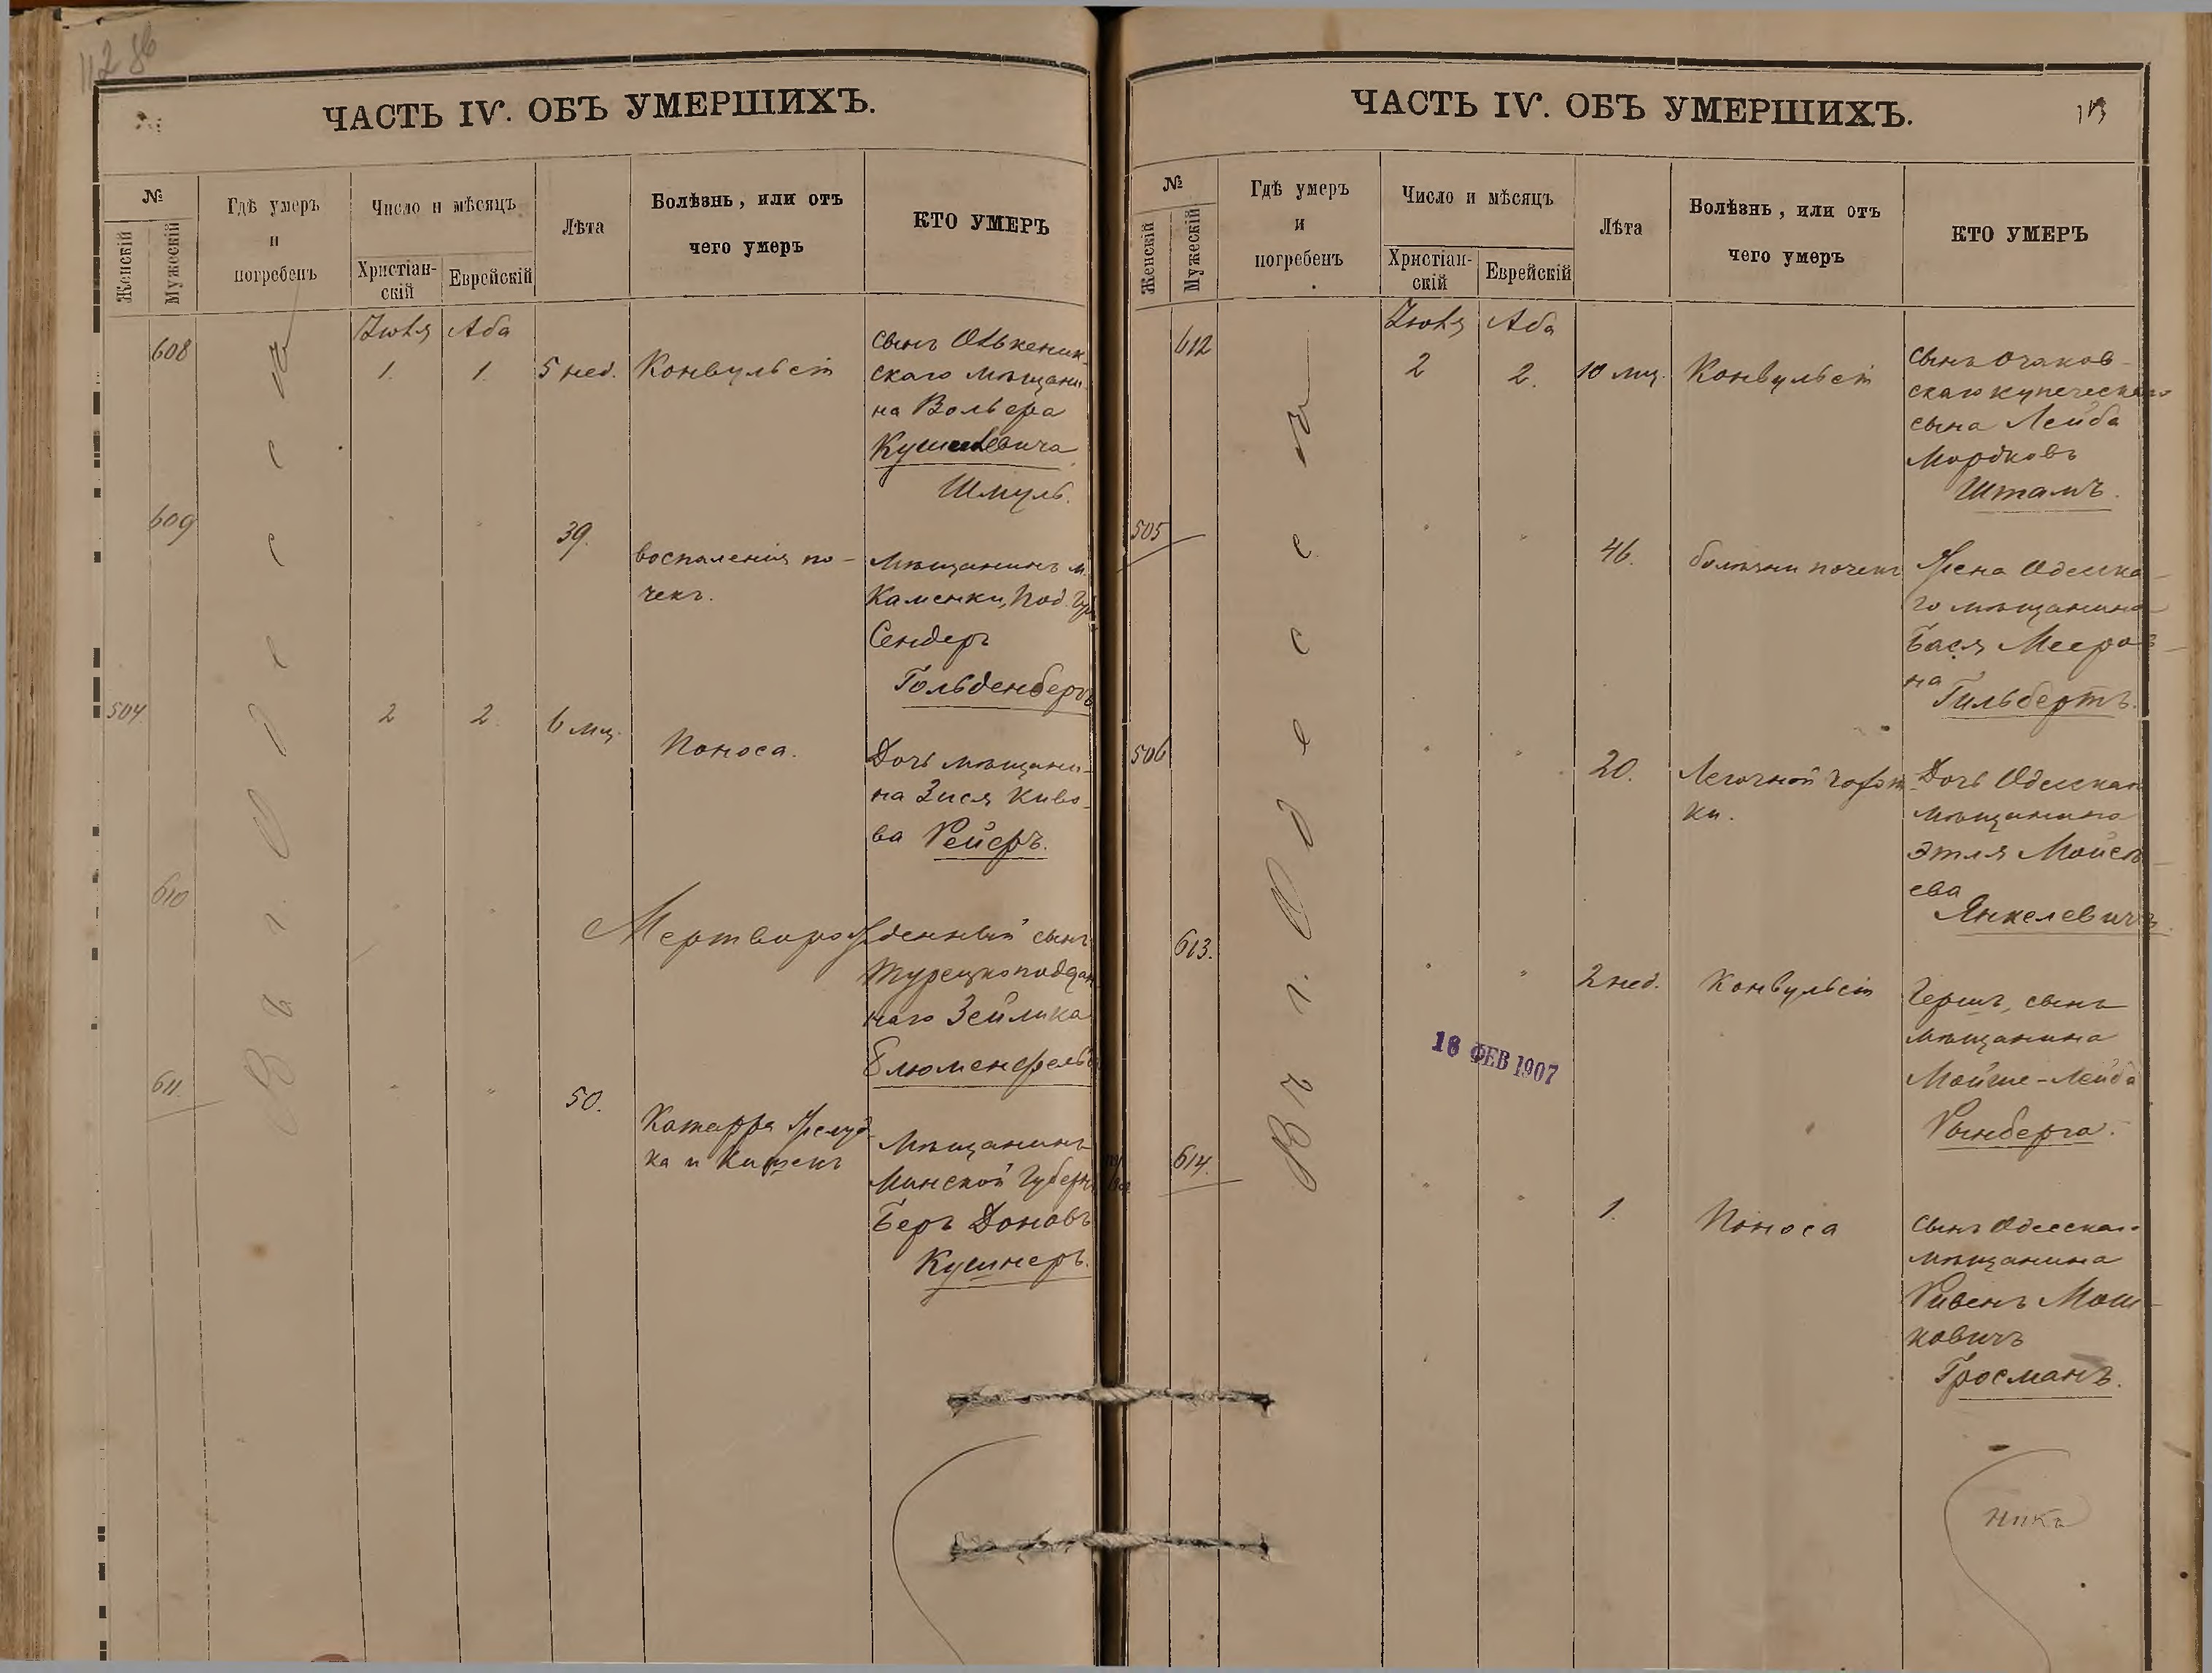 ЧАСТЬ IV. ОБЪ УМЕРШИХЪ.
№
Женскій
Мужескій
Гдѣ умеръ
и
погребенъ
Число и мѣсяцъ
Христіан-
скій
Еврейскій
Лѣта
Болѣзнь, или отъ
чего умеръ
КТО УМЕРЪ
Въ г. Одессѣ
608
Іюля Аба
1. 1. 5 нед. Конвульсіи
сынъ Олькеник-
скаго мѣщани-
на Вольфа
Кушелевича
Шмуль.
609
39.
воспаленія по-
чекъ.
Мѣщанинъ м.
Каменки, Под. Губ.
Сендеръ
Гольденбергъ
504.
2 2. 6 мц.
Поноса.
Дочь мѣщани-
на Зися Киво-
ва Рейеръ.
610
Мертворожденный сынъ
турецкоподдан
наго Зейлика
Блюменфельд
611.
50.
Катарра желуд-
ка и Кишекъ
Мѣщанинъ
Минской Губерн
Беръ Доновъ
Кушнеръ.
ЧАСТЬ IV. ОБЪ УМЕРШИХЪ.
113
№
Женскій
Мужескій
Гдѣ умеръ
и
погребенъ
Число и мѣсяцъ
Христіан-
скій
Еврейскій
Лѣта
Болѣзнь, или отъ
чего умеръ
КТО УМЕРЪ
Въ г. Одессѣ
612
Іюля Аба
2 2. 10 мц. Конвульсіи
сынъ Очаков-
скаго купеческаго
сына Лейба
Мордковъ
Штамъ.
505
46.
болѣзни почекъ
Жена Одесска-
го мѣщанина
Бася Мееров-
на
Гильбертъ.
506
20.
Легочной чахот
ки.
Дочь Одесскаго
мѣщанина
Этля Мойсе-
ева
Янкелевичъ
613.
2 нед. Конвульсіи
Гершъ, сынъ
мѣщанина
Мойше-Лейба
Рынберга.
18 ФЕВ 1907
614.
1. Поноса
Сынъ Одесскаго
мѣщанина
Рувенъ Мош-
ковичъ
Гросманъ.